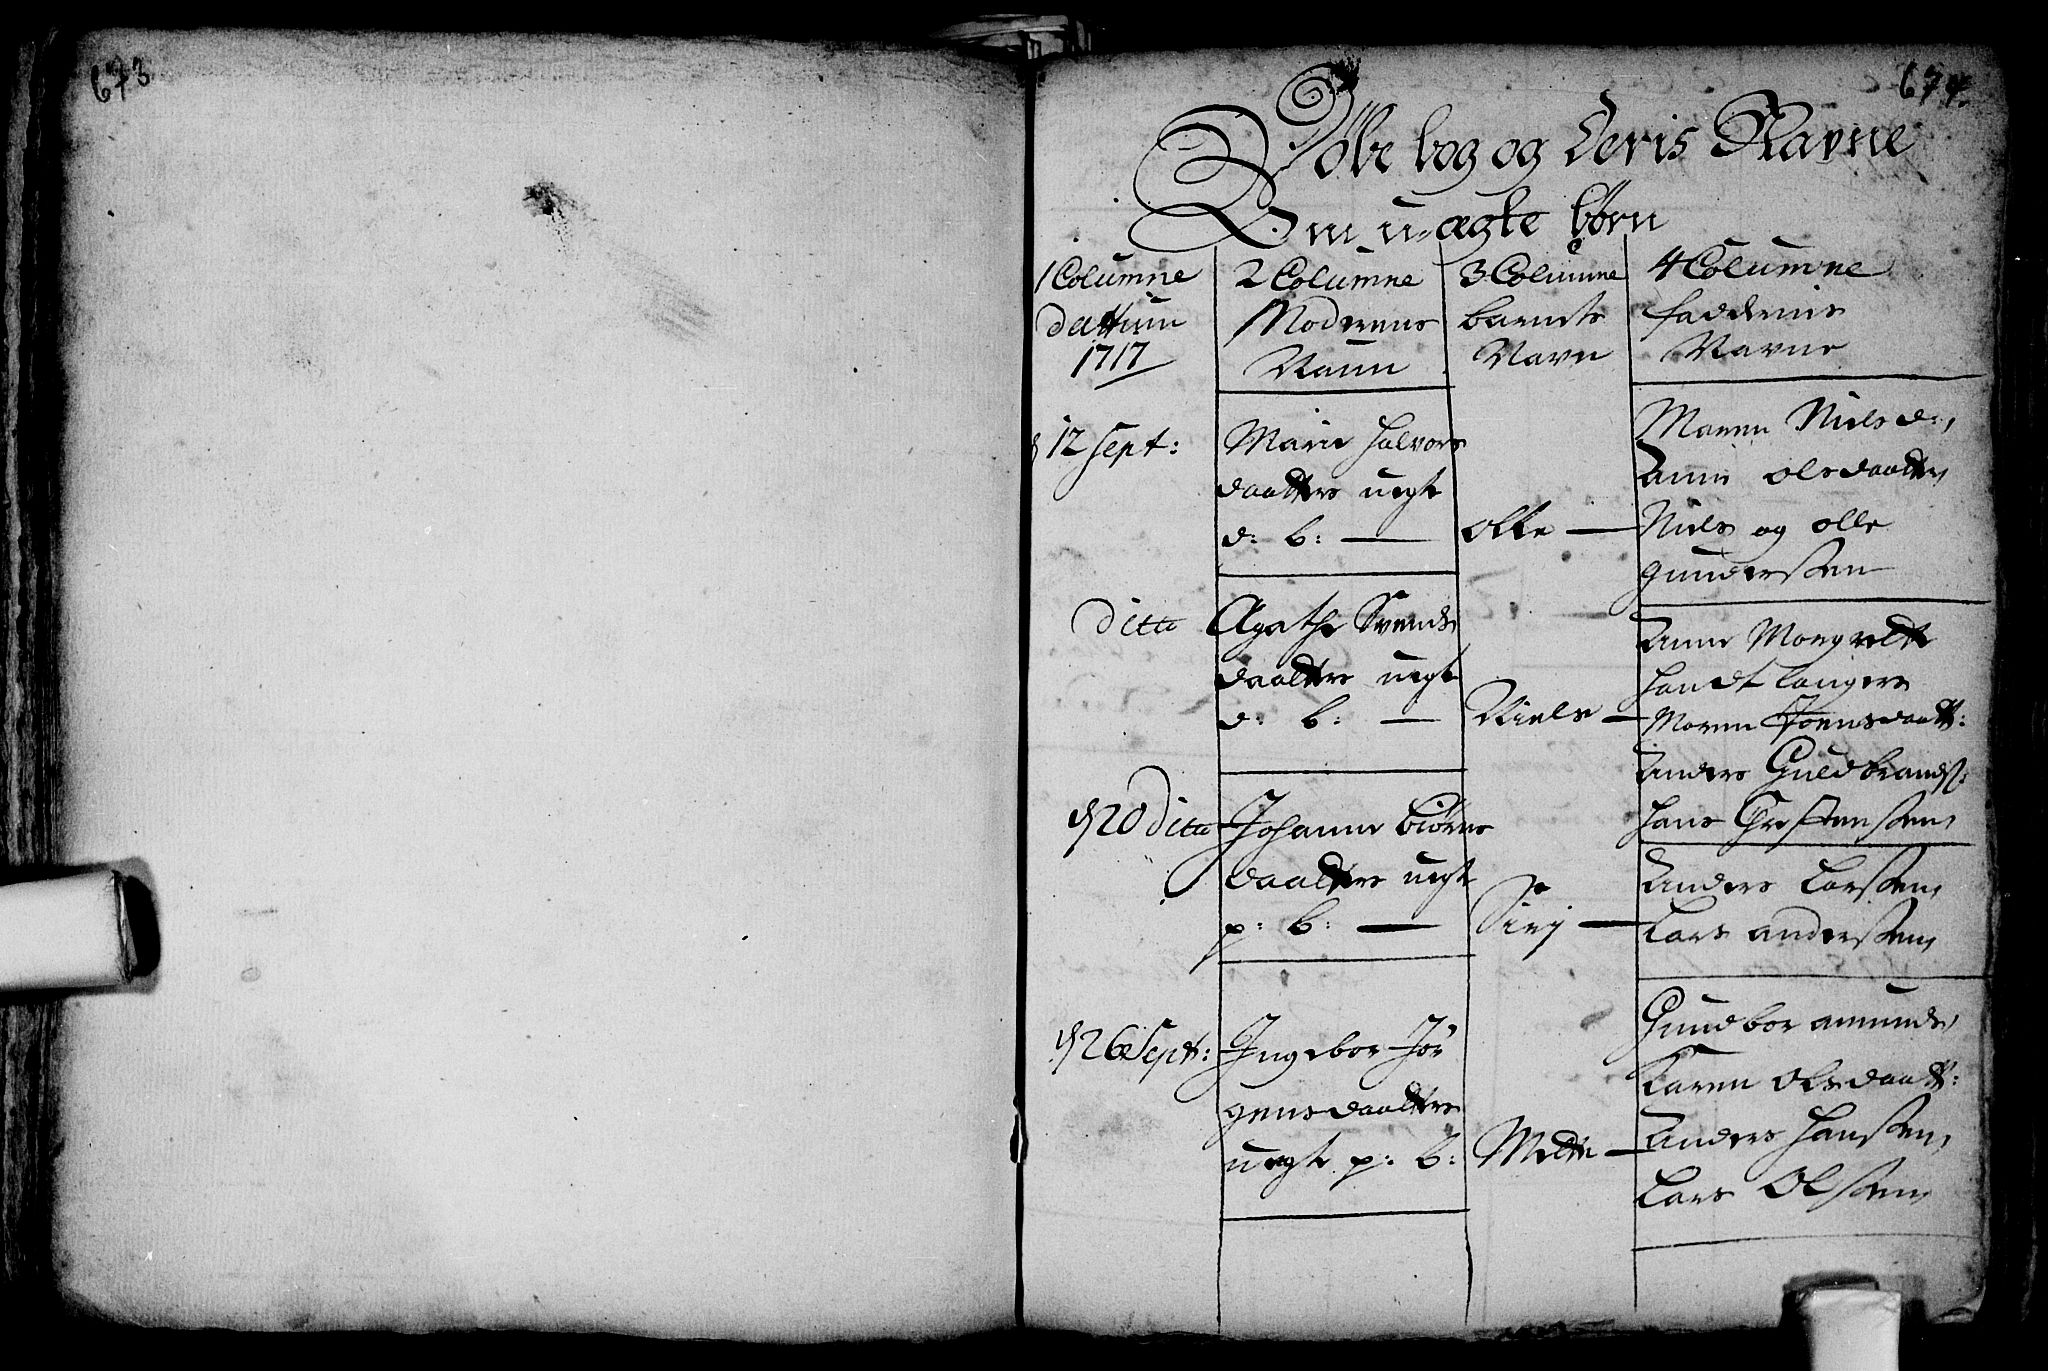 673
674
Døbe bog og Deris Navne
Om u-ægte børn
1 Columne
Dattum
1717
2 Columne
Moderens
Naun
3 Columne
barnets
Navn
4 Columne
faddernis
Navne
12 Sept:
Marie Halvors
daatters uegte
d: b: —
Olle —
Maren Nielsd:,
Anne Olsdaatter,
Niels og Olle
Gunderssen
Ditto
Agathe Svends
daatters uegte
d: b: —
Niels —
Anne Margrette
Maren Joensdaatt:
Anders Guldbrands:
Hans Christenssen,
20 Ditto
Johanne Biørns
daatters uegte
p: b: —
Siri —
Anders Larssen,
Lars Anderssen,
26 Sept:
Ingebor Jør
gensdaatters
uegte p: b:
Mette —
Gundbor Amunds,
Karen Olsdaatt:
Anders Hanssen,
Lars Olssen,